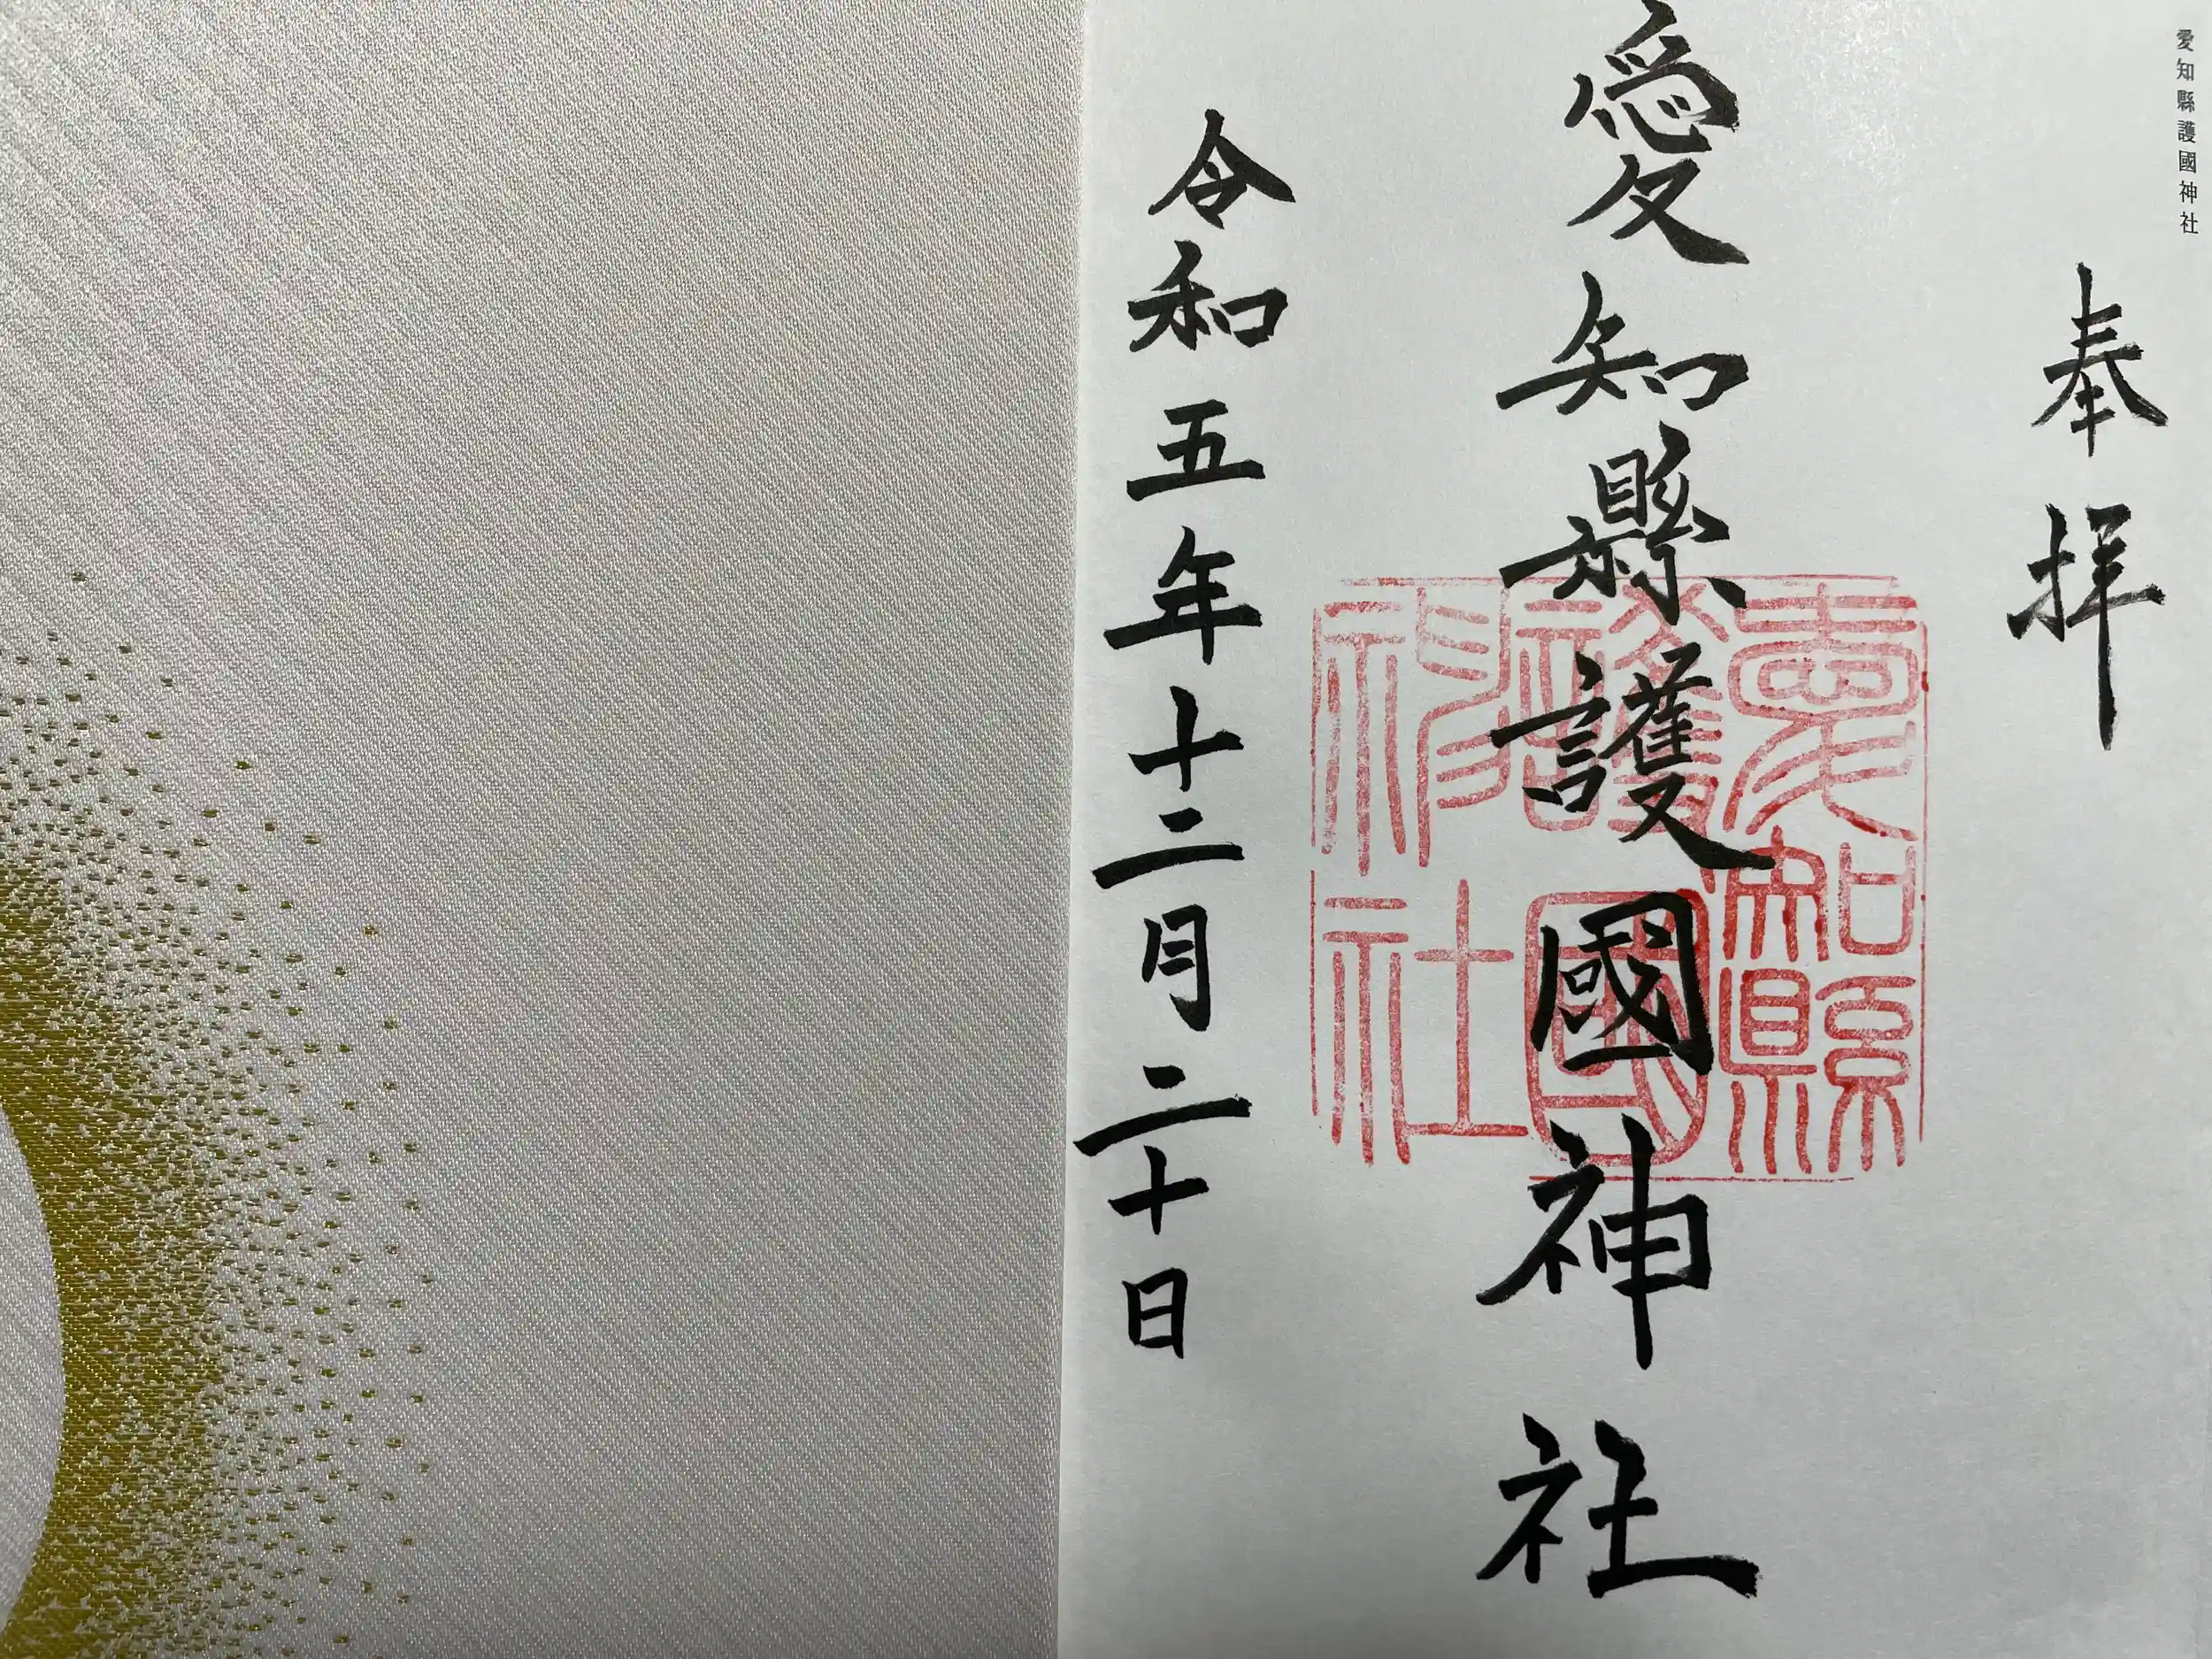 愛知縣護國神社
奉拝
愛知縣護國神社
愛知縣護國神社
令和五年十二月二十日